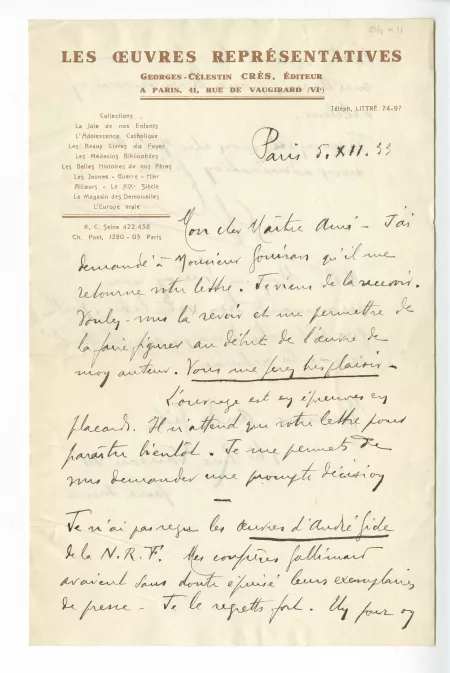 04-11
LES ŒUVRES REPRÉSENTATIVES
GEORGES-CÉLESTIN CRÈS, ÉDITEUR
A PARIS, 41, RUE DE VAUGIRARD (VIᵉ)
Téléph. LITTRÉ 74-97
Collections :
La Joie de nos Enfants
L'Adolescence Catholique
Les Beaux Livres du Foyer
Les Médecins Bibliophiles
Les Belles Histoires de nos Pères
Les Jeunes - Guerre - Hier
Ailleurs - Le XIXᵉ Siècle
Le Magasin des Demoiselles
L'Europe vraie
R. C. Seine 422.458
Ch. Post. 1280-03 Paris
Paris 5. XII. 33
Mon cher Maître Ami - J'ai
demandé à Monsieur qu'il me
retourne votre lettre. Je viens de la recevoir.
Voulez-vous la revoir et me permettre de
la faire figurer au début de l'œuvre de
mon auteur. Vous me ferez très plaisir -
L'ouvrage est en épreuves en
placards. Il n'attend que votre lettre pour
paraître bientôt. Je me permets de
vous demander une prompte décision
—
Je n'ai pas reçu les œuvres d'André Gide
de la N.R.F. Mes confrères Gallimard
avaient sans doute épuisé leurs exemplaires
de presse - Je le regrette fort. Un jour on